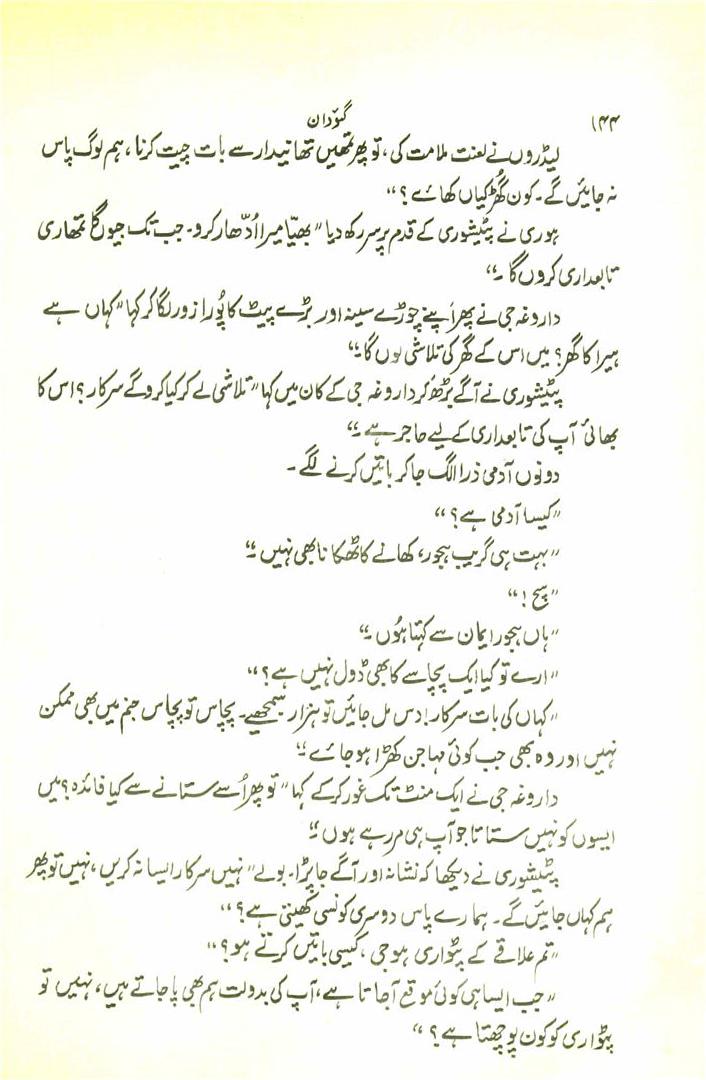 ۱۴۴ گئودان
لیڈروں نے لعنت ملامت کی، تو پھر تمھیں تھانیدار سے بات چیت کرنا، ہم لوگ پاس
نہ جائیں گے۔ کون گھڑکیاں کھائے؟“
ہوری نے پٹیشوری کے قدم پر سر رکھ دیا ”بھیّا میرا اُدّھار کرو۔ جب تک جیوں گا تمھاری
تابعداری کروں گا۔“
داروغہ جی نے پھر اپنے چوڑے سینہ اور بڑے پیٹ کا پُورا زور لگا کر کہا ”کہاں ہے
ہیرا کا گھر؟ میں اس کے گھر کی تلاشی لوں گا۔“
پٹیشوری نے آگے بڑھ کر داروغہ جی کے کان میں کہا ”تلاشی لے کر کیا کرو گے سرکار؟ اس کا
بھائی آپ کی تابعداری کے لیے حاجر ہے۔“
دونوں آدمی ذرا الگ جا کر باتیں کرنے لگے۔
”کیسا آدمی ہے؟“
”بہت ہی گریب ہجور، کھانے کا ٹھکانا بھی نہیں۔“
”سچ!“
”ہاں ہجور ایمان سے کہتا ہُوں۔“
”ارے تو کیا ایک پچاسے کا بھی ڈول نہیں ہے؟“
”کہاں کی بات سرکار! دس مل جائیں تو ہزار سمجھیے۔ پچاس تو پچاس جنم میں بھی ممکن
نہیں اور وہ بھی جب کوئی مہاجن کھڑا ہو جائے۔“
داروغہ جی نے ایک منٹ تک غور کر کے کہا ”تو پھر اُسے ستانے سے کیا فائدہ؟ میں
ایسوں کو نہیں ستاتا جو آپ ہی مر رہے ہوں۔“
پٹیشوری نے دیکھا کہ نشانہ اور آگے جا پڑا۔ بولے ”نہیں سرکار ایسا نہ کریں، نہیں تو پھر
ہم کہاں جائیں گے۔ ہمارے پاس دوسری کونسی کھیتی ہے؟“
”تم علاقے کے پٹواری ہو جی، کیسی باتیں کرتے ہو؟“
”جب ایسا ہی کوئی موقع آ جاتا ہے، آپ کی بدولت ہم بھی پا جاتے ہیں، نہیں تو
پٹواری کو کون پوچھتا ہے؟“